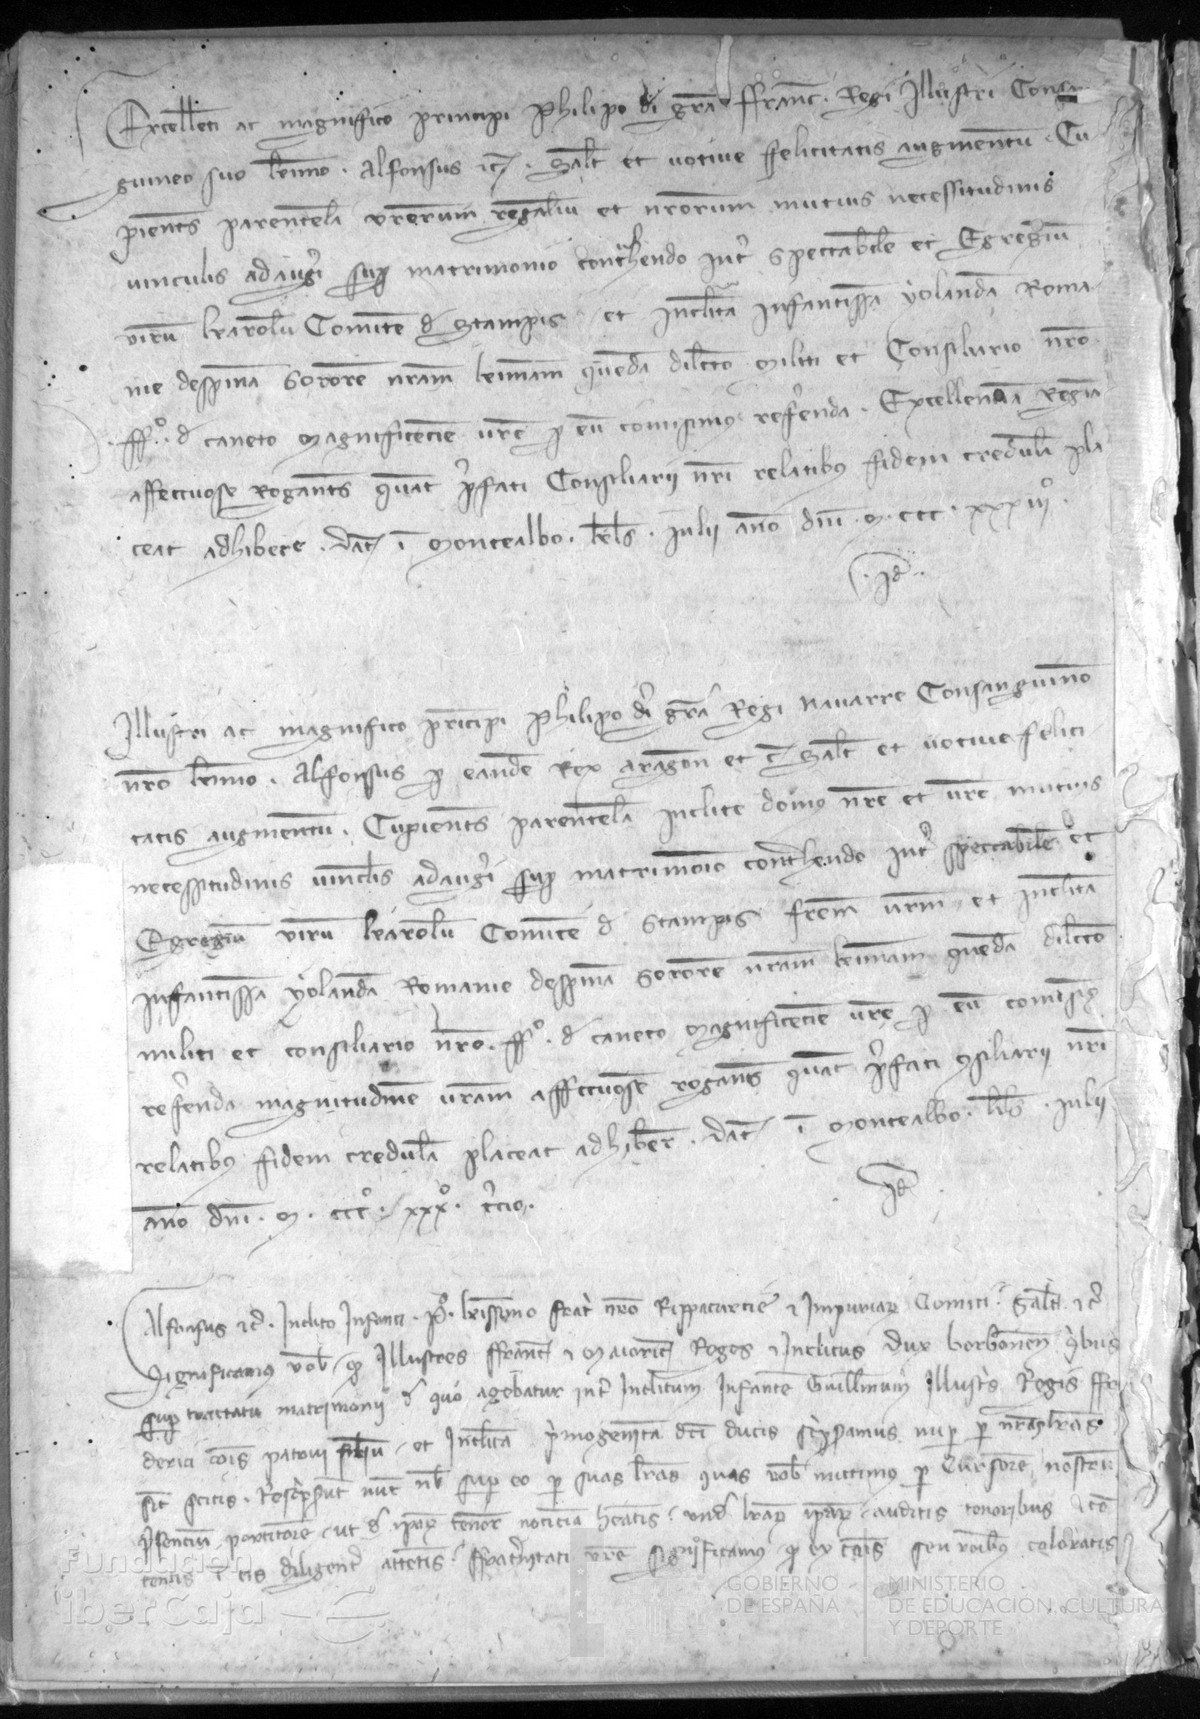 Excellenti ac magnifico principi Philipo dī gr̄a ffranc̄. Regi Illustri Consan
guineo suo kmo. Alfonsus etc̄. Sal̄t et votive ffelicitatis augmentū. Cu
pient̄s parentel̄a vrorum regaliū et nrorum mutuis necessitudinis
vinculis adaugi sup matrimonio contrahendo int̄ spectabilē et Egregiū
virū karolū Comitē d̄ Stampis et Inclitā Infantissā yolandā Roma
nie despinā Sororē nr̄am kmam quedā dilc̄o militi et Consiliario nr̄o
ff̊. d̄ caneto magnificēcie vr̄e p eū comisimus referenda. Excellenciā Regiā
affectuose Rogant̄s quat̄ p̄fati Consiliarii nr̄i relatibus fidem credulā pla
ceat adhibere. dat̄ ī Montealbo. kl̄s. Julii anno dn̄i. M. ccc. xxxiii̊.
Id̄
Illustri ac magnifico principi Philipo dī gr̄a Regi Navarre Consanguineo
nr̄o kmo. Alfonsus p eandē Rex aragon̄ et c̄ Sal̄t et votive felici
tatis augmentū. Cupient̄s parentelā inclite domus nr̄e et vr̄e mutuis
necessitudinis vincl̄is adaugi sup matrimonio contrahendo int̄ spectabilē et
Egregiū virū karolū Comitē d̄ Stampis frēm vr̄m et inclitā
infantissā yolandā Romanie despinā Sororē nr̄am kmam quedā dilc̄o
militi et consiliario nr̄o. ff̊. d̄ caneto magnificēcie vr̄e p eū comisim̄
referenda magnitudinē vr̄am affectuose rogant̄s quat̄ p̄fati 9siliarii nr̄i
relatibus fidem credulā placeat adhiber̄. dat̄ ī Montealbo. kl̄s. Julii
anno dn̄i. M. ccc̊. xxx̊. t̄cio.
Id̄
Alfonsus etc̄. Inclito Infanti. P̊. kr̄issimo frat̄i nr̄o Rippacurcie et Impuriar̄ Comiti. Salt̄ etc̄
Significamus vob̄ q̄ Illustres ffranc̄ et Maioric̄ Reges et Inclitus dux borbonen̄ q̄bus
sup tractatu matrimonii d̄ quo agebatur int̄ Inclitum Infantē Guillmum Illustr̄s Regis ffre
derici filiū et Inclitā p̄mogenitā dc̄i ducis sc̄psamus nup p nr̄as lr̄as
sic̄ scitis. Resc̄pserūt nūc nob̄ sup eo p suas lr̄as quas vob̄ mittimus p Cursorē nostrū
p̄senciū portitorē ut d̄ ip̄ar̄ tenor̄ noticiā h̄eatis. Und̄ lr̄ar̄ ip̄ar̄ auditis tenoribus et con
tentis ī eis diligent̄ attentis. ffrat̄nitati vr̄e significamus q̄ ex seu coloratis
Fundación
iberCaja
GOBIERNO
DE ESPAÑA
MINISTERIO
DE EDUCACIÓN, CULTURA
Y DEPORTE